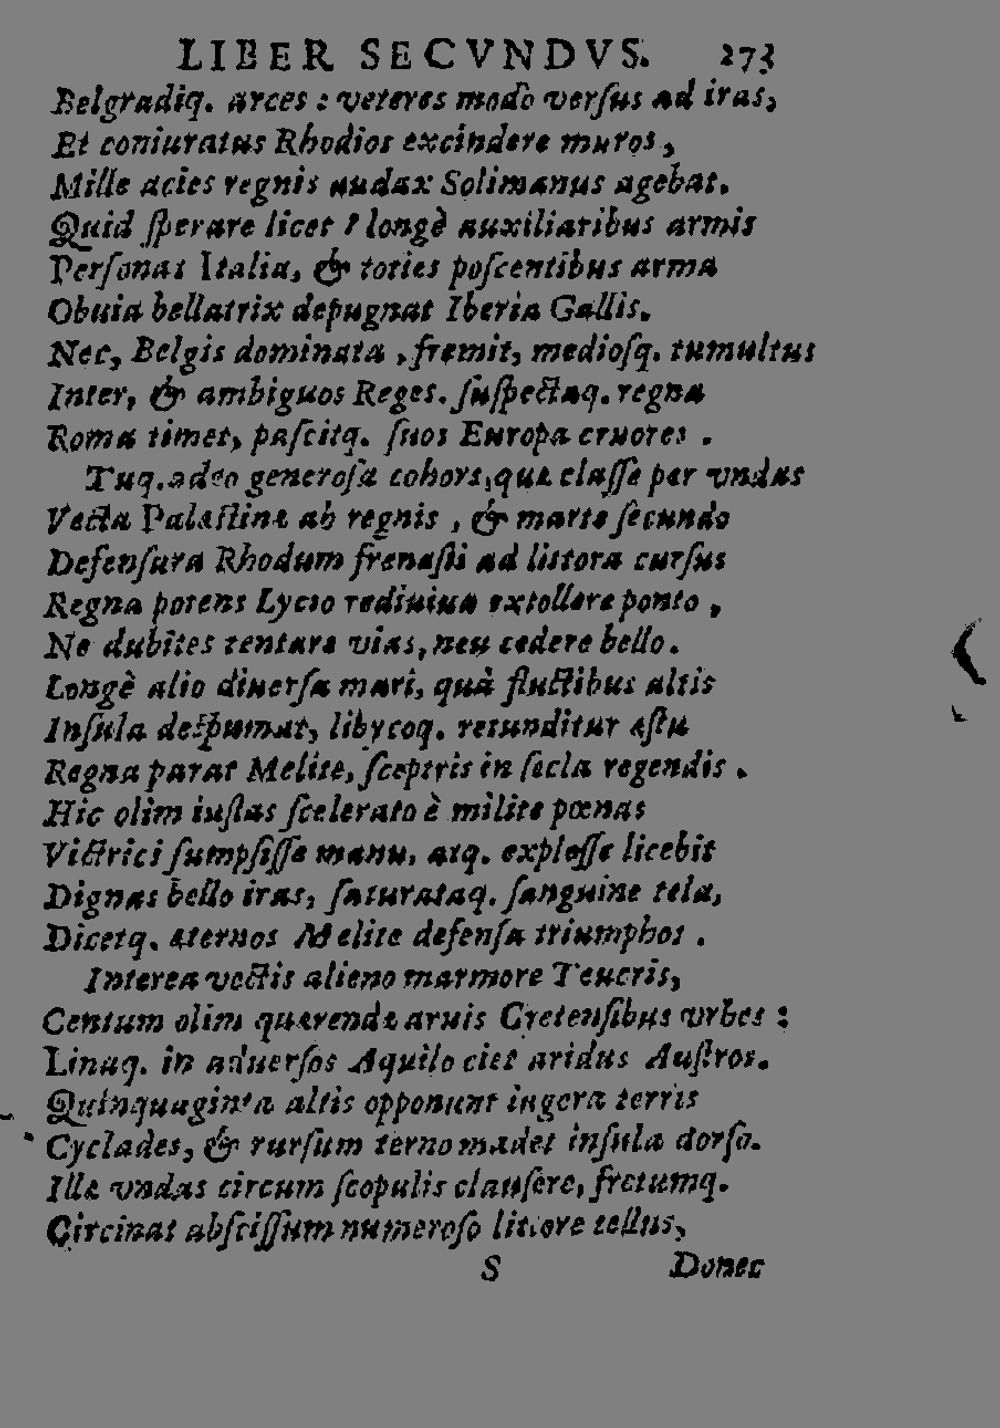 LIBER SECVNDVS. 273
Belgradiq. arces : veteres modo versus ad iras,
Et coniuratus Rhodios excindere muros,
Mille acies regnis audax Solimanus agebat.
Quid sperare licet ? longè auxiliaribus armis
Personat Italia, & toties poscentibus arma
Obuia bellatrix depugnat Iberia Gallis.
Nec, Belgis dominata, fremit, mediosq. tumultus
Inter, & ambiguos Reges. suspectaq. regna
Roma timet, pascitq. suos Europa cruores .
Tuq. adeo generosa cohors, quæ classe per vndas
Vecta Palæstinæ ab regnis , & marte secundo
Defensura Rhodum frenasti ad littora cursus
Regna potens Lycio rediuiua extollere ponto ,
Ne dubites tentare vias, neu cedere bello.
Longè alio diuersa mari, quà fluctibus altis
Insula despumat, libycoq. retunditur æstu
Regna parat Melite, sceptris in secla regendis .
Hic olim iustas scelerato è milite pœnas
Victrici sumpsisse manu, atq. explesse licebit
Dignas bello iras, saturataq. sanguine tela,
Dicetq. æternos Melite defensa triumphos .
Interea vectis alieno marmore Teucris,
Centum olim quærendæ aruis Cretensibus vrbes :
Linaq. in aduersos Aquilo ciet aridus Austros.
Quinquaginta altis opponunt iugera terris
Cyclades, & rursum terno madet insula dorso.
Illæ vndas circum scopulis clausere, fretumq.
Circinat abscissum numeroso littore tellus,
S Donec